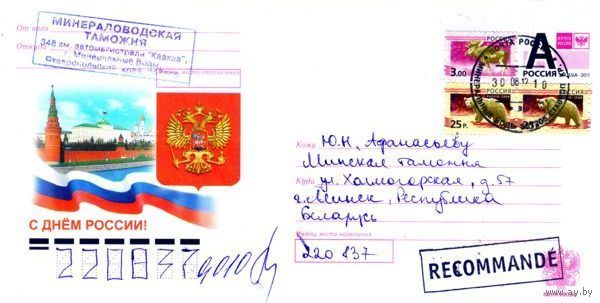 МИНЕРАЛОВОДСКАЯ
ТАМОЖНЯ
От кого
348 км. автомагистрали "Кавказ",
Откуда
г. Минеральные Воды
Ставропольский край
3.00
А
РОССИЯ
ПОЧТА РОССИИ
РОССИЯ
РОССИЯ
25 р.
30 08 12 10
Кому Ю.Н. Афанасьеву
Минская таможня
Куда ул. Холмогорская, д. 57
г. Минск, Республика
Беларусь
Индекс места назначения
220 837
С ДНЁМ РОССИИ!
220837
RECOMMANDÉ
www.ay.by